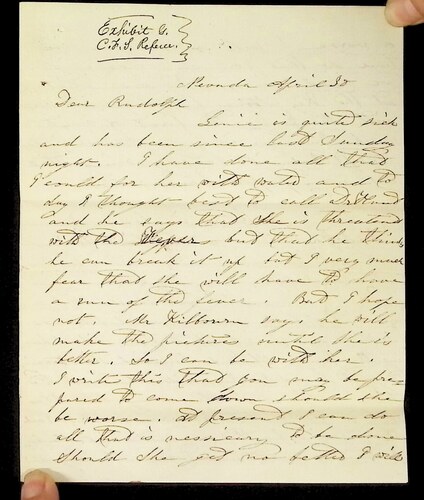 Exhibit G.
C.F.S. Referee.
Nevada April 30
Dear Rudolph
Louie is quite sick
and has been since last Sunday
night. I have done all that
I could for her with water and to
day I thought best to call Dr
and he says that she is threatened
with the Fevers but that he thinks
he can break it up but I very much
fear that she will have to have
a run of the fever. But I hope
not. Mr Kilbourn say he will
make the pictures until she is
better. So I can be with her.
I write this that you may be pre-
pared to come down should she
be worse. At present I can do
all that is nessicary to be done
Should she get no better I will